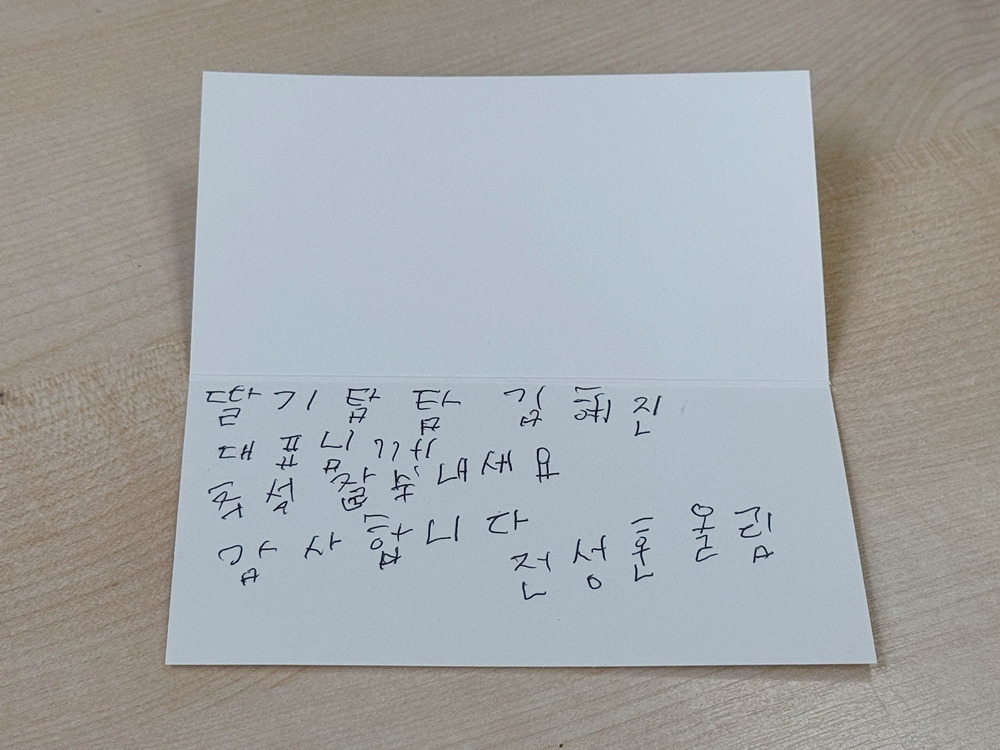 딸기탐탐 김현진
대표님께
추석 잘 보내세요
감사합니다
전성훈 올림